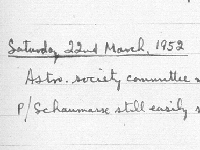 Saturday 22nd March, 1952
Astro. society committee
P/Schaumasse still easily